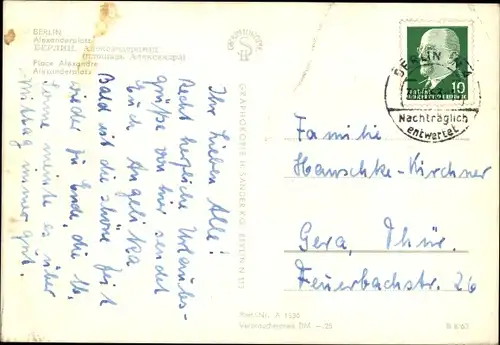 BERLIN
Alexanderplatz
БЕРЛИН.
Place Alexandre
Alexanderplatz
Ihr Lieben Alle!
Recht herzliche Urlaubs-
grüße von hier sendet
Euch Angelika
Bald ist die schöne Zeit
wieder zu Ende, die
Sonne meinte es über
Mittag immer gut.
GRAPHOKOPIE H. SANDER KG BERLIN N 113
BERLIN
10
Nachträglich
entwertet
Familie
Hanschke-Kirchner
Gera, Thür.
Feuerbachstr. 26
Best.-Nr. A 1530
Verbraucherpreis DM –.25
B 6/63